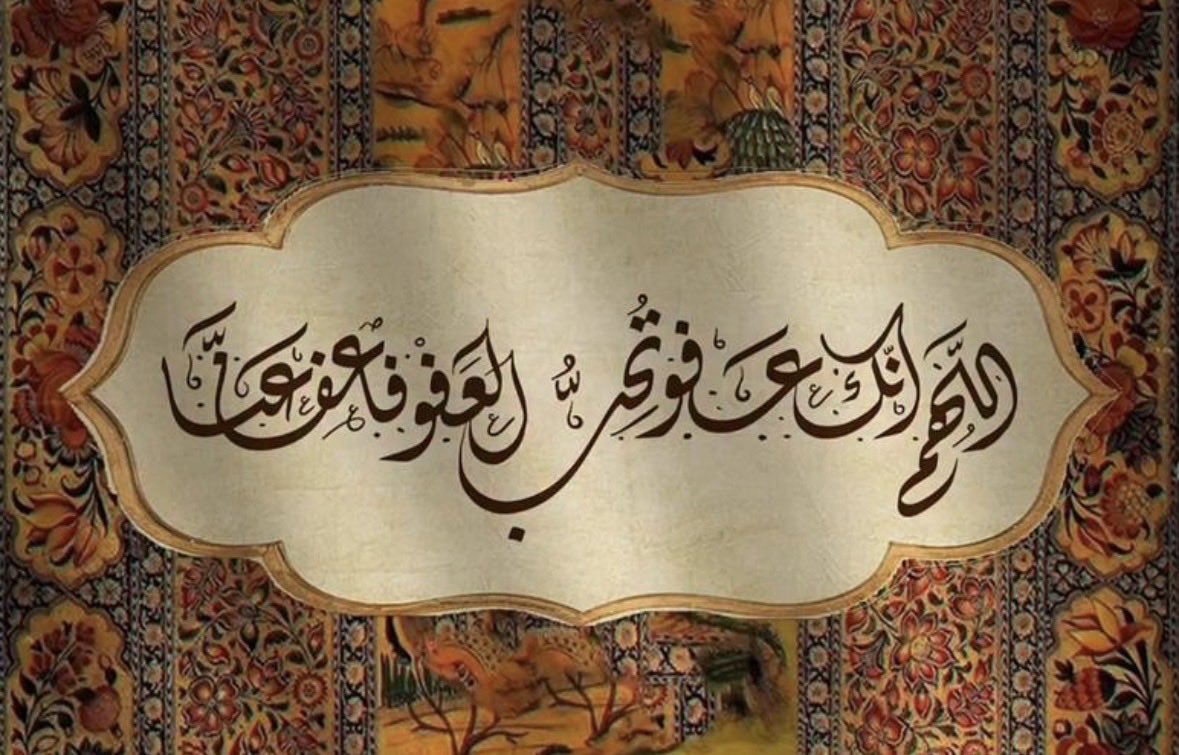 اللهم انك عفو تحب العفو فاعف عنا